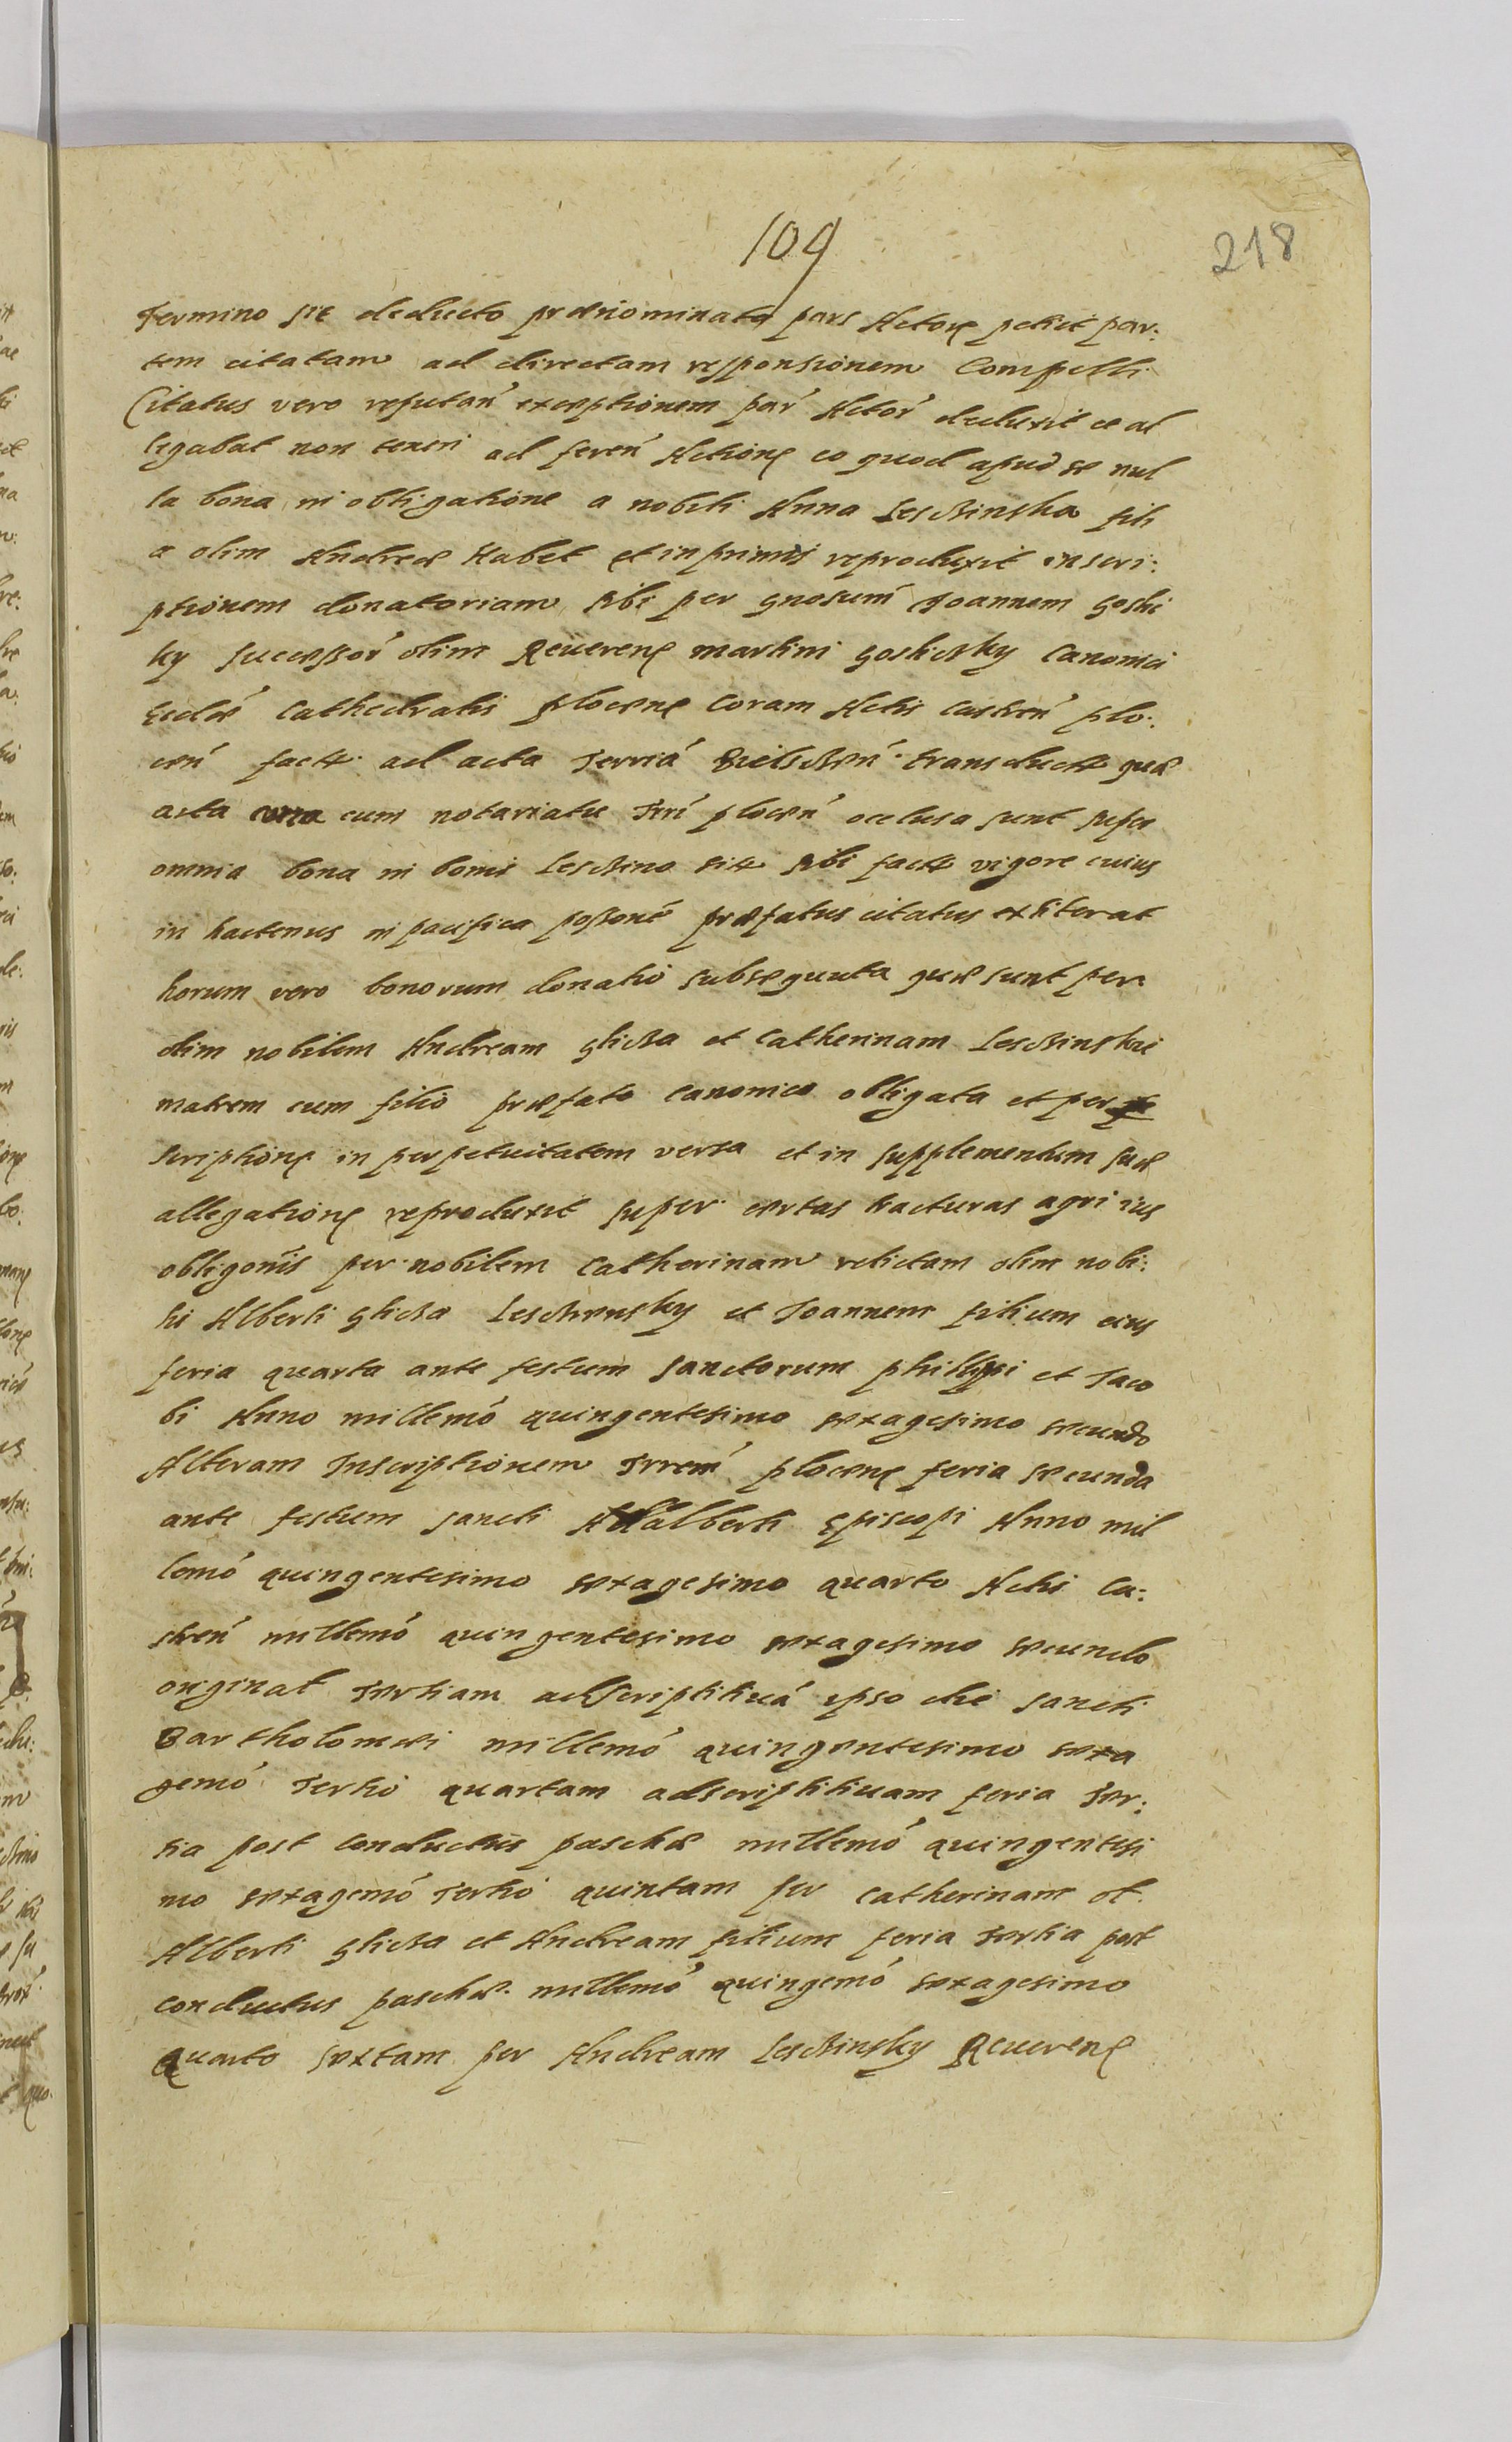 109
218
Termino sic deducto prænominata pars Actoreꝫ petiit par:
tem citatam ad directam responsionem Compelli
Citatus vero reputań exceptionem par Actoŕ deduxit ce al
legabat non teneri ad sereń Actioneꝫ eo quod apud se nul
la bona in obligatione a nobili Anna Leschinska fili
a olim Andreæ Habet et inprimis reproduxit inscri:
ptionem donatoriam sibi per gnosum Joannem Goslic
ky successoŕ olim Reuerenꝫ martini Goslicsky Canonici
Eccłæ Cathedralis ploceneꝫ Coram Actis castreń plo:
ceń factt ad acta Terriá Bielsceń transductt quæ
acta cum notariatu Trrí ploceń occlusa sunt super
omnia bona in bonis Leschino sitt sibi factt vigore cuius
in hactenus in pacifica possoné præfatus citatus extiterat
horum vero bonorum donatio subsequuta quæ sunt per
olim nobilem Andream Glicza et Catherinam Leschinskie
matrem cum filio præfato Canonico obligata et per
scriptioneꝫ in perpetuitatem versa et in supplementum suæ
allegationeꝫ reproduxit super certas fracturas agri ius
obligonis per nobilem Catherinam relictam olim nobi:
lis Alberti Glicza Leschensky et Joannem filium eius
feria quarta ante festum Sanctorum philippi et Jaco
bi Anno millemó quingentesimo sexagesimo secundo
Alteram Inscriptionem Trreń ploceneꝫ feria secunda
ante festum sancti Adalberti Episcopi Anno mil
lemó quingentesimo sexagesimo quarto Actis Ca:
streń millemó quingentesimo sexagesimo secundo
originat Tertiam adscriptitiuá ipso die sancti
Bartholomæi millemó quingentesimo sexa
gemó Tertio quartam adscriptitiuam feria Ter:
tia post conductus paschæ millemó quingentesi
mo sexagemó Tertio quintam per Catherinam ol.
Alberti Glicza et Andream filium feria Tertia post
conductus paschæ millemó quingemó sexagesimo
Quarto sextam per Andream Leschinsky Reuerenꝫ